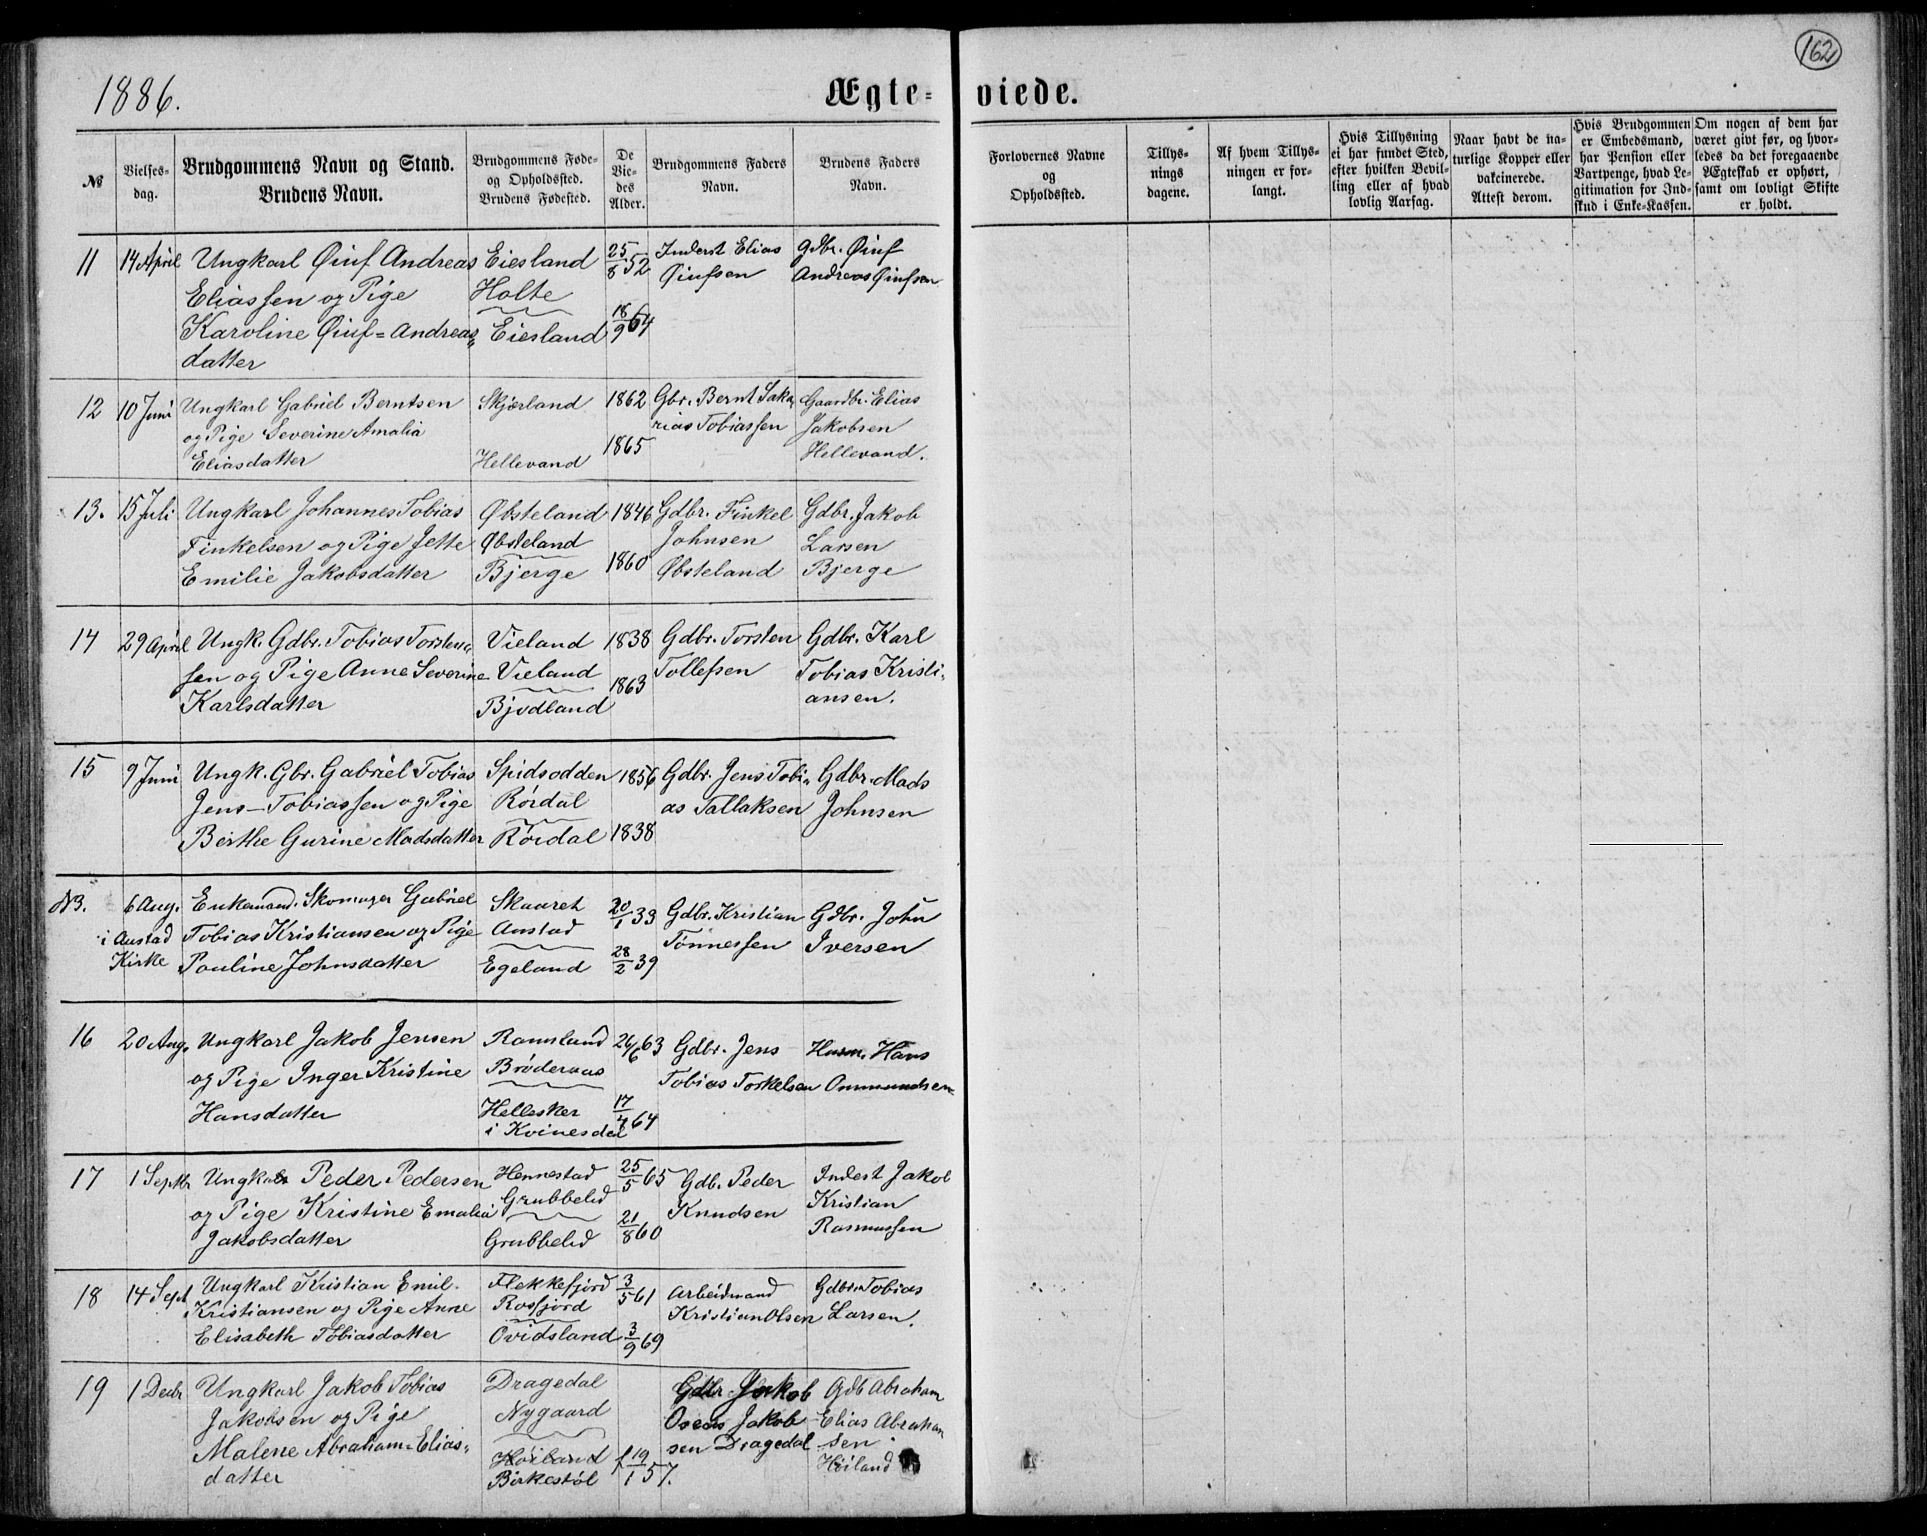 162
1886.
Ægte= viede.
№
Vielses-
dag.
Brudgommens Navn og Stand.
Brudens Navn.
Brudgommens Føde-
og Opholdsted.
Brudens Fødested.
De
Vie-
des
Alder.
Brudgommens Faders
Navn.
Brudens Faders
Navn.
Forlovernes Navne
og
Opholdsted.
Tillys-
nings
dagene.
Af hvem Tillys-
ningen er for-
langt.
Hvis Tillysning
ei har fundet Sted,
efter hvilken Bevil-
ling eller af hvad
lovlig Aarsag.
Naar havt de na-
turlige Kopper eller
vakcinerede.
Attest derom.
Hvis Brudgommen
er Embedsmand,
har Pension eller
Vartpenge, hvad Le-
gitimation for Ind-
skud i Enke-Kassen.
Om nogen af dem har
været givt før, og hvor-
ledes da det foregaaende
Ægteskab er ophørt,
samt om lovligt Skifte
er holdt.
11 14 April Ungkarl Øiuf Andreas Eiesland 25/8 52 Inderst Elias Gdbr. Øiuf
Eliassen og Pige Holte Øiufsen Andreas Øiufsen
Karoline Øiuf=Andreas„ Eiesland 18/9 64
datter
12 10 Juni Ungkarl Gabriel Berntsen Skjærland 1862 Gbr. Bernt Saka„ Gaardbr. Elias
og Pige Severine Amalia rias Tobiassen Jakobsen
Eliasdatter Hellevand 1865 Hellevand.
13. 15 Juli Ungkarl Johannes Tobias Øbsteland 1846 Gdbr. Finkel Gdbr. Jakob
Finkelsen og Pige Jette Øbsteland Johnsen Larsen
Emilie Jakobsdatter Bjerge 1860 Øbsteland Bjerge
14 29 April Ungk. Gdbr. Tobias Torsten„ Vieland 1838 Gdbr. Torsten Gdbr. Karl
sen og Pige Anne Severine Vieland Tollefsen Tobias Kristi„
Karlsdatter Bjodland 1863 ansen.
15 9 Juni Ungk. Gbr. Gabriel Tobias Spidsodden 1856 Gdbr. Jens Tobi„ Gdbr. Mads
Jens-Tobiassen og Pige Rørdal as Tallaksen Johnsen
Berthe Gurine Madsdatter Rørdal 1838
N3. 6 Aug. Enkemand. Skomager Gabriel Skaaret 20/1 33 Gdbr. Kristian Gdbr. John
i Austad Tobias Kristiansen og Pige Austad Tønnessen Iversen
Kirke Pauline Johnsdatter Egeland 28/2 39
16 20 Aug. Ungkarl Jakob Jensen Ramsland 26/6 63 Gdbr. Jens Husm. Hans
og Pige Inger Kristine Brøderaas Tobias Torkelsen Ommundsen
Hansdatter Hellesker 17/4 64
i Kvinesdal
17 1 Septbr Ungkarl Peder Pedersen Hennestad 25/5 65 Gdb. Peder Inderst Jakob
og Pige Kristine Emalia Grubbelid Knudsen Kristian
Jakobsdatter Grubbelid 21/8 60 Rasmussen
18 14 Sept Ungkarl Kristian Emil Flekkefjord 3/5 61 Arbeidmand Gdbr. Tobias
Kristiansen og Pige Anne Rosfjord Kristian Olsen Larsen.
Elisabeth Tobiasdatter Ovidsland 3/9 69
19 1 Decbr Ungkarl Jakob Tobias Dragedal Gdbr Jakob Gdb Abraham
Jakobsen og Pige Nygaard Oseas Jakob- Elias Abraham
Malene Abraham=Elias„ Høiland sen Dragedal sen
datter Birkestøl f 19/1 57. Høiland